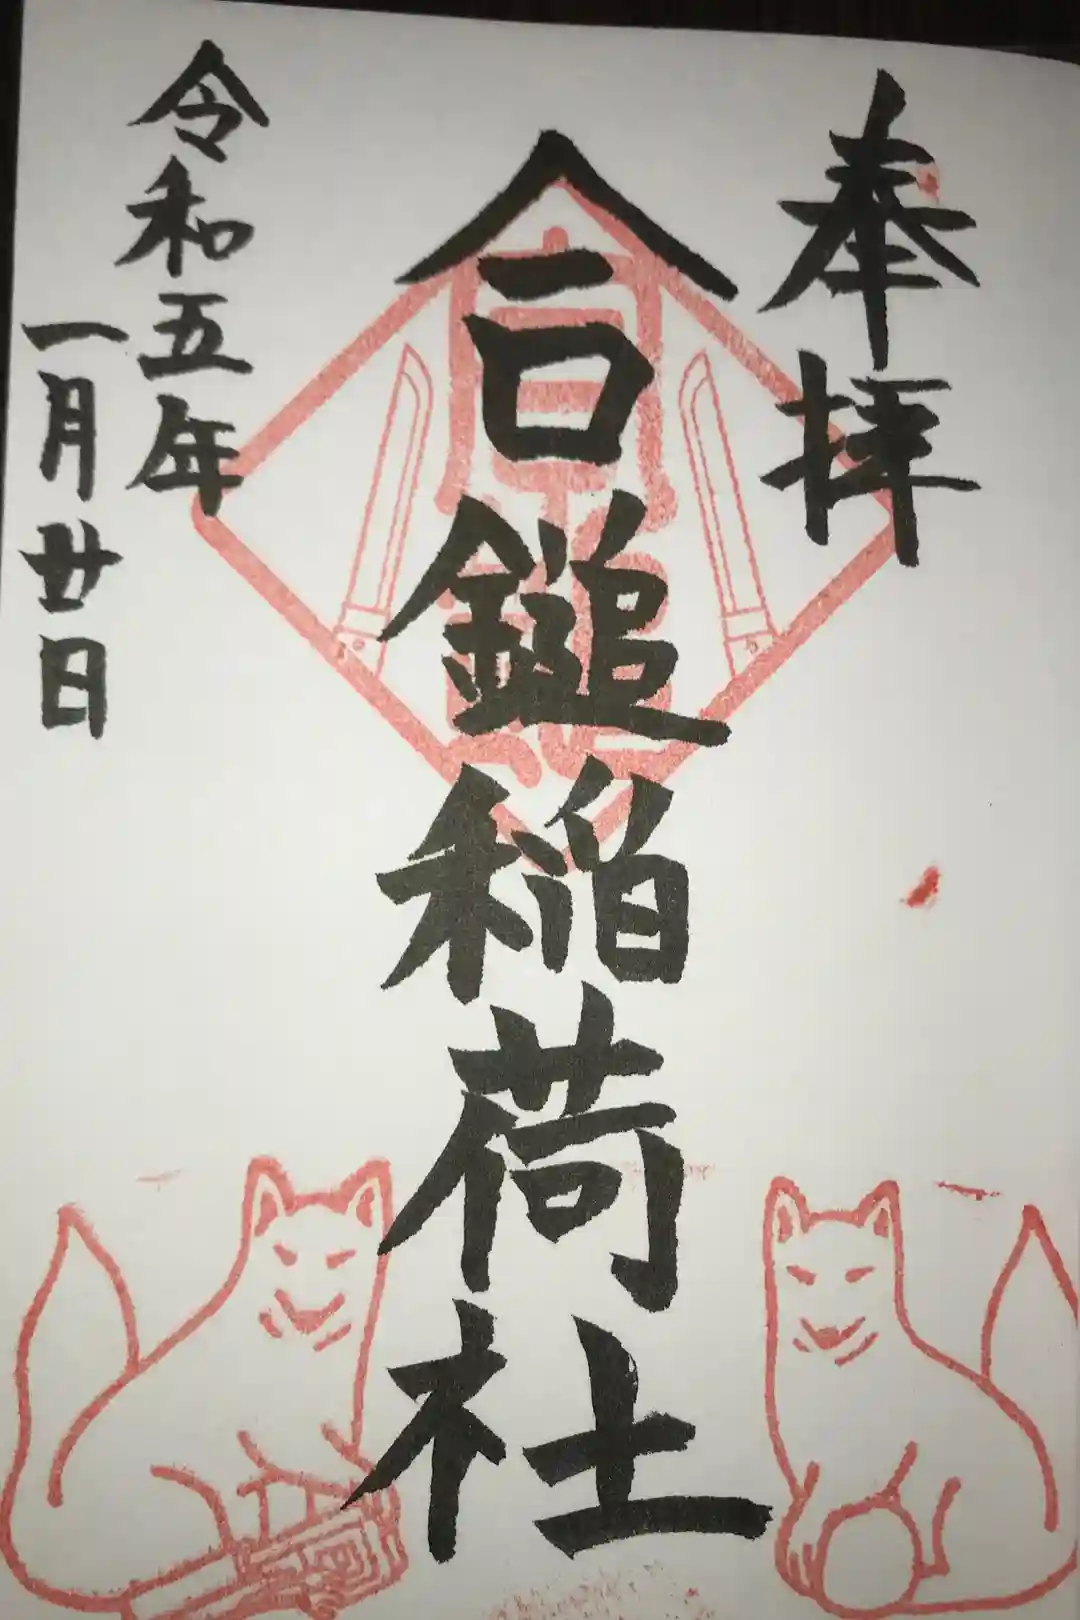 奉拝
合鎚稲荷社
令和五年
一月廿日